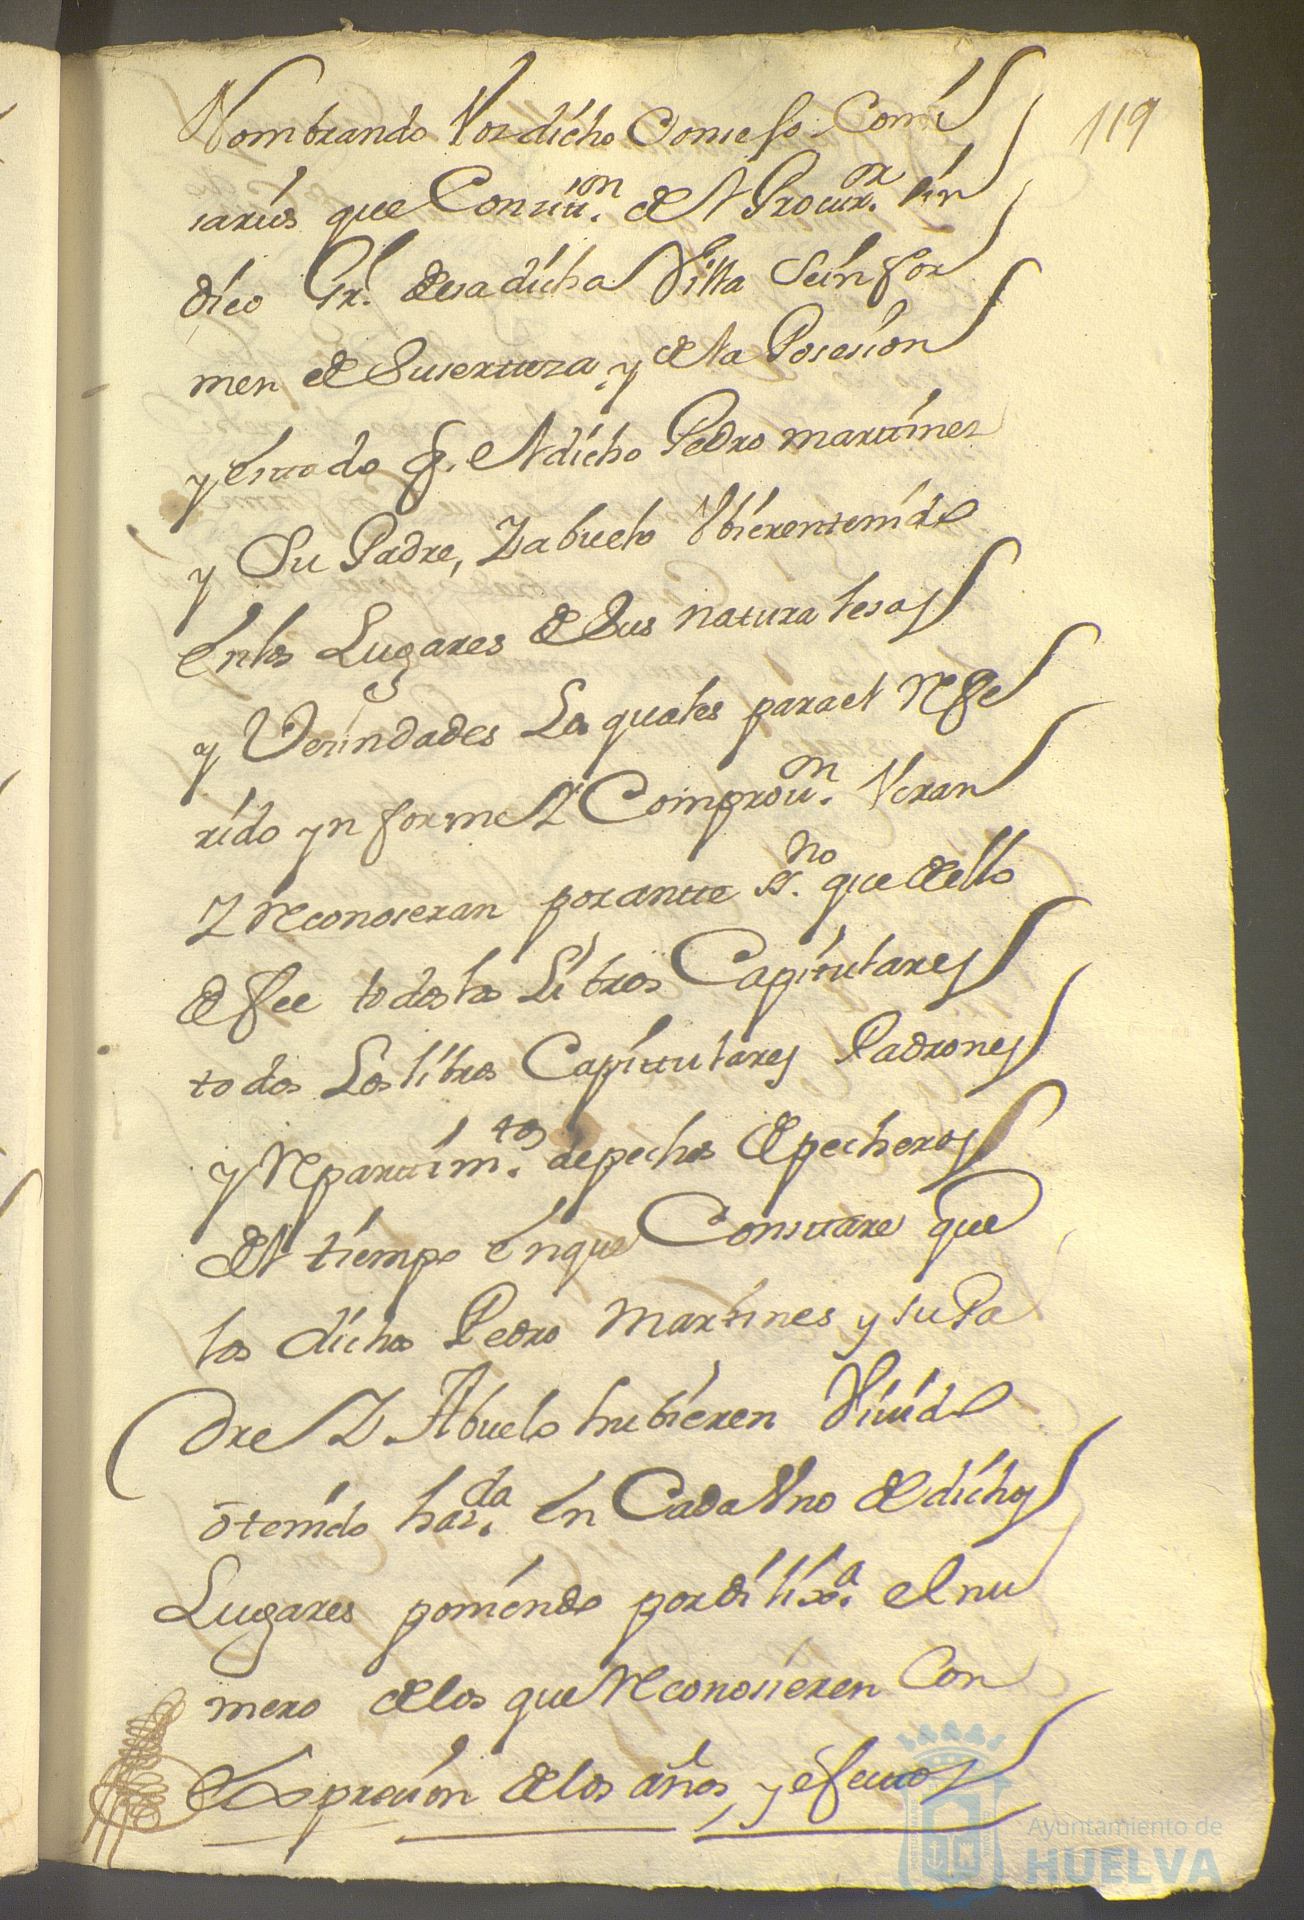 119
Nombrando Por dicho Consejo Comi
sarios que Con zitt.on del Procur.or Sin
dico Gr.l de esa dicha Villa Se infor
men de Su sertteza, y de la Posesion
y estado q. el dicho Pedro marttines
y Su Padre, Y abuelo Ubieren tenido
en los Lugares de Sus naturalesas
y Vezindades Los quales para el Refe
rido ynforme Y Comprov.on Veran
Y Reconoseran por antte SS.no que de ello
de fee todos los Libros Capitulares
todos Los libros Capittulares Padrones
y Reparttim.tos de pechos de pecheros
del tiempo en que Consttare que
los dichos Pedro Martines y su Pa
dre Y Abuelo hubieren Vivido
o tenido haz.da en Cada Uno de dichos
Lugares poniendo por dilix.a el nu
mero de los que Reconosieren Con
Expresion de los años, y efecttos
Ayuntamiento de
HUELVA